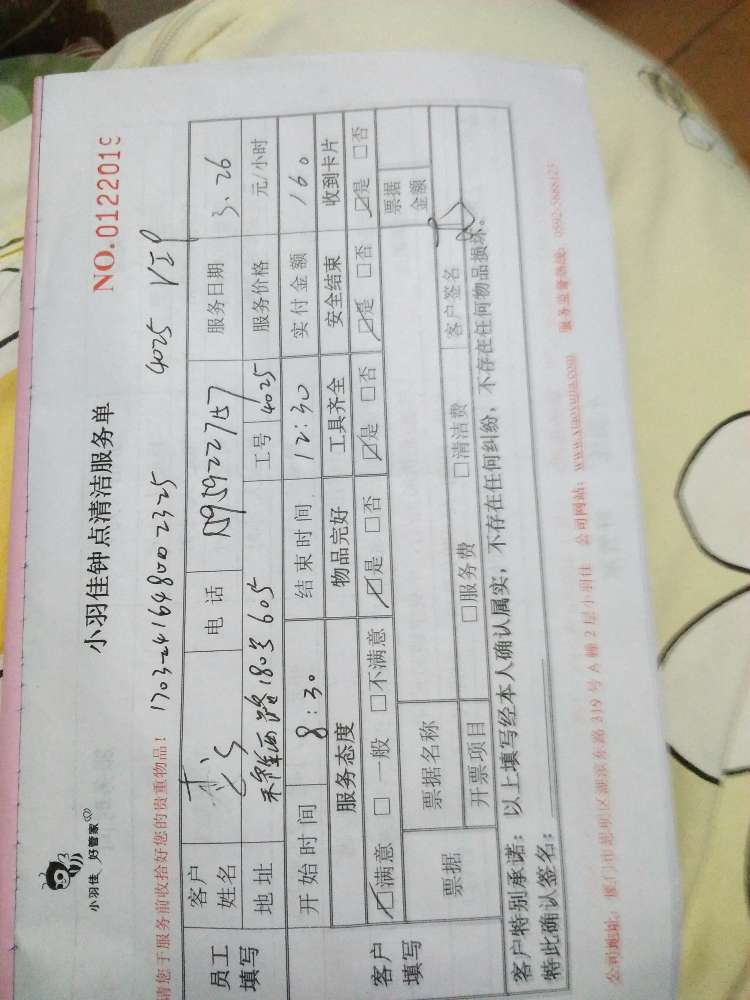 小羽佳 好管家
小羽佳钟点清洁服务单
NO.0122019
请您于服务前收拾好您的贵重物品！ 1703241648002325 4025 VIP
员工填写 客户姓名 电话 服务日期 3.26
地址 180号605 工号 4025 服务价格 元/小时
开始时间 8:30 结束时间 12:30 实付金额 160
客户填写 服务态度 物品完好 工具齐全 安全结束 收到卡片
☑满意 □一般 □不满意 ☑是 □否 ☑是 □否 ☑是 □否 ☑是 □否
票据 票据名称 票据金额
开票项目 □服务费 □清洁费 客户签名
客户特别承诺：以上填写经本人确认属实，不存在任何纠纷，不存在任何物品损坏。
特此确认签名：
公司地址：厦门市思明区湖滨东路319号A幢2层小羽佳 公司网站：www.xiaoyujia.com 服务监督热线：